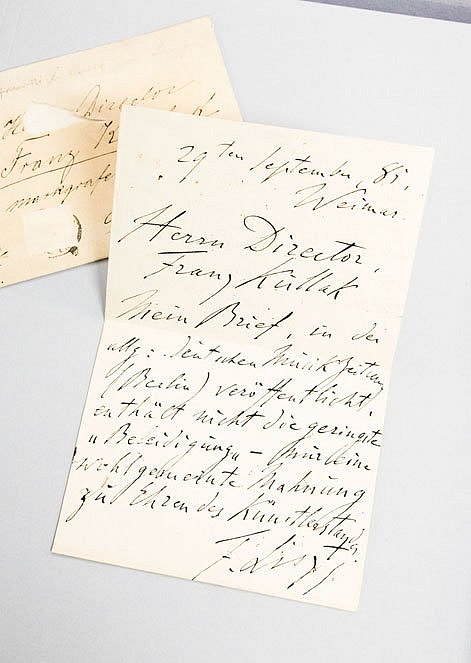 Director
Franz
Markgrafe
29ten September, 85,
Weimar.
Herrn Director,
Franz Kullak
Mein Brief, in der
allg: deutschen Musik Zeitung
(Berlin) veröffentlicht,
enthält nicht die geringste
„Beleidigung„ – nur eine
wohlgemeinte Mahnung
zu Ehren des Künstlerstandes.
F. Liszt